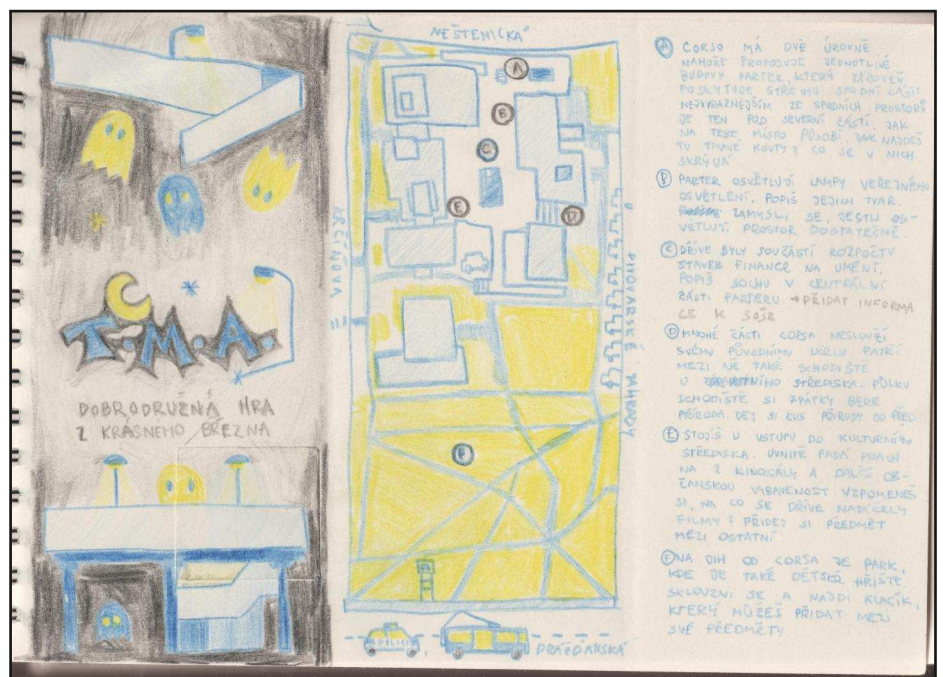 T.M.A.
DOBRODRUŽNÁ HRA
Z KRÁSNÉHO BŘEZNA
NEŠTĚMICKÁ
A
B
C
E
D
KŘIČKOVA
F
POLICIE
DRÁŽĎANSKÁ
A CORSO MÁ DVĚ ÚROVNĚ
NAHOŘE PROPOJUJE JEDNOTLIVÉ
BUDOVY PARTER, KTERÝ ZÁROVEŇ
POSKYTUJE STŘECHU SPODNÍ ČÁSTI
NEJVÝRAZNĚJŠÍM ZE SPODNÍCH PROSTORŮ
JE TEN POD SEVERNÍ ČÁSTÍ. JAK
NA TEBE MÍSTO PŮSOBÍ? JAK NAJDEŠ
TU TAJNÉ KOUTY? CO SE V NICH
SKRÝVÁ
B PARTER OSVĚTLUJÍ LAMPY VEŘEJNÉHO
OSVĚTLENÍ. POPIŠ JEJICH TVAR.
ZAMYSLI SE, JESTLI OS-
VĚTLUJÍ PROSTOR DOSTATEČNĚ.
C DŘÍVE BYLY SOUČÁSTÍ ROZPOČTU
STAVEB FINANCE NA UMĚNÍ.
POPIŠ SOCHU V CENTRÁLNÍ
ČÁSTI PARTERU → PŘIDAT INFORMA
CE K SOŠE
D MNOHÉ ČÁSTI CORSA NESLOUŽÍ
SVÉMU PŮVODNÍMU ÚČELU PATŘÍ
MEZI NĚ TAKÉ SCHODIŠTĚ
U STŘEDISKA. PŮLKU
SCHODIŠTĚ SI ZPÁTKY BERE
PŘÍRODA. VEZ SI KUS PŘÍRODY DO PŘED
E STOJÍŠ U VSTUPU DO KULTURNÍHO
STŘEDISKA. UVNITŘ PADÁ PRACH
NA 2 KINOSÁLY A DALŠÍ OB-
ČANSKOU VYBAVENOST VZPOMENEŠ
SI, NA CO SE DŘÍVE NATÁČELY
FILMY? PŘIDEJ SI PŘEDMĚT
MEZI OSTATNÍ
F NA JIH OD CORSA JE PARK,
KDE JE TAKÉ DĚTSKÉ HŘIŠTĚ
SKLOUZNI SE A NAJDI KLACÍK,
KTERÝ MŮŽEŠ PŘIDAT MEZI
SVÉ PŘEDMĚTY